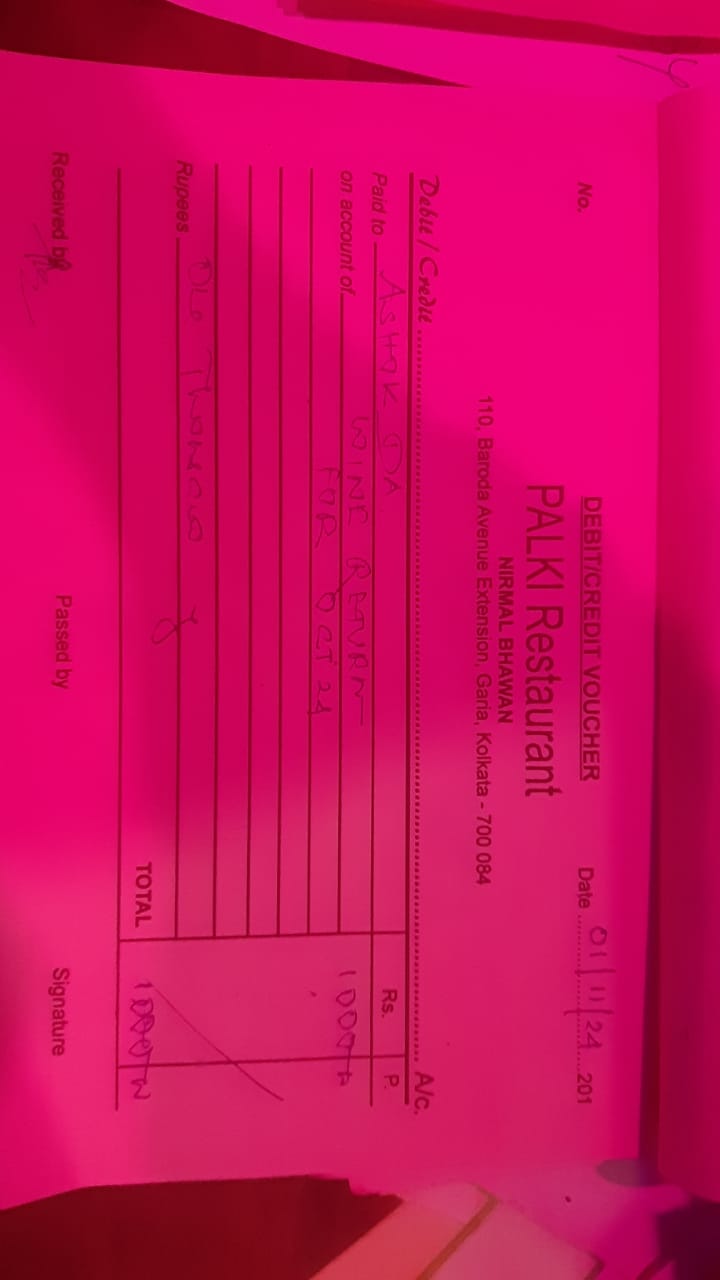 DEBIT/CREDIT VOUCHER
No.
Date 01/11/24 201
PALKI Restaurant
NIRMAL BHAWAN
110, Baroda Avenue Extension, Garia, Kolkata - 700 084
Debit / Credit A/c.
Paid to ASHOK DA Rs. P.
on account of WINE RETURN
FOR OCT 24
Rupees
TOTAL
Received by Passed by Signature